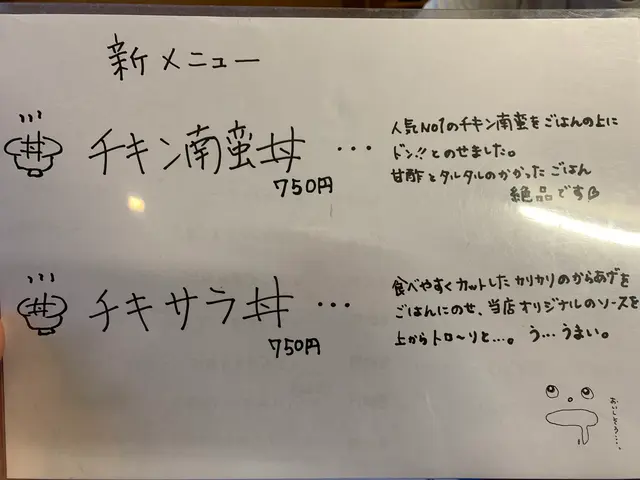 新メニュー
井 チキン南蛮丼 ...
750円
人気NO1のチキン南蛮をごはんの上に
ドン!!とのせました。
甘酢とタルタルのかかったごはん
絶品です
井 チキサラ丼 ...
750円
食べやすくカットしたカリカリのからあげを
ごはんにのせ、当店オリジナルのソースを
上からトロ〜リと...。う...うまい。
おいしそう...、